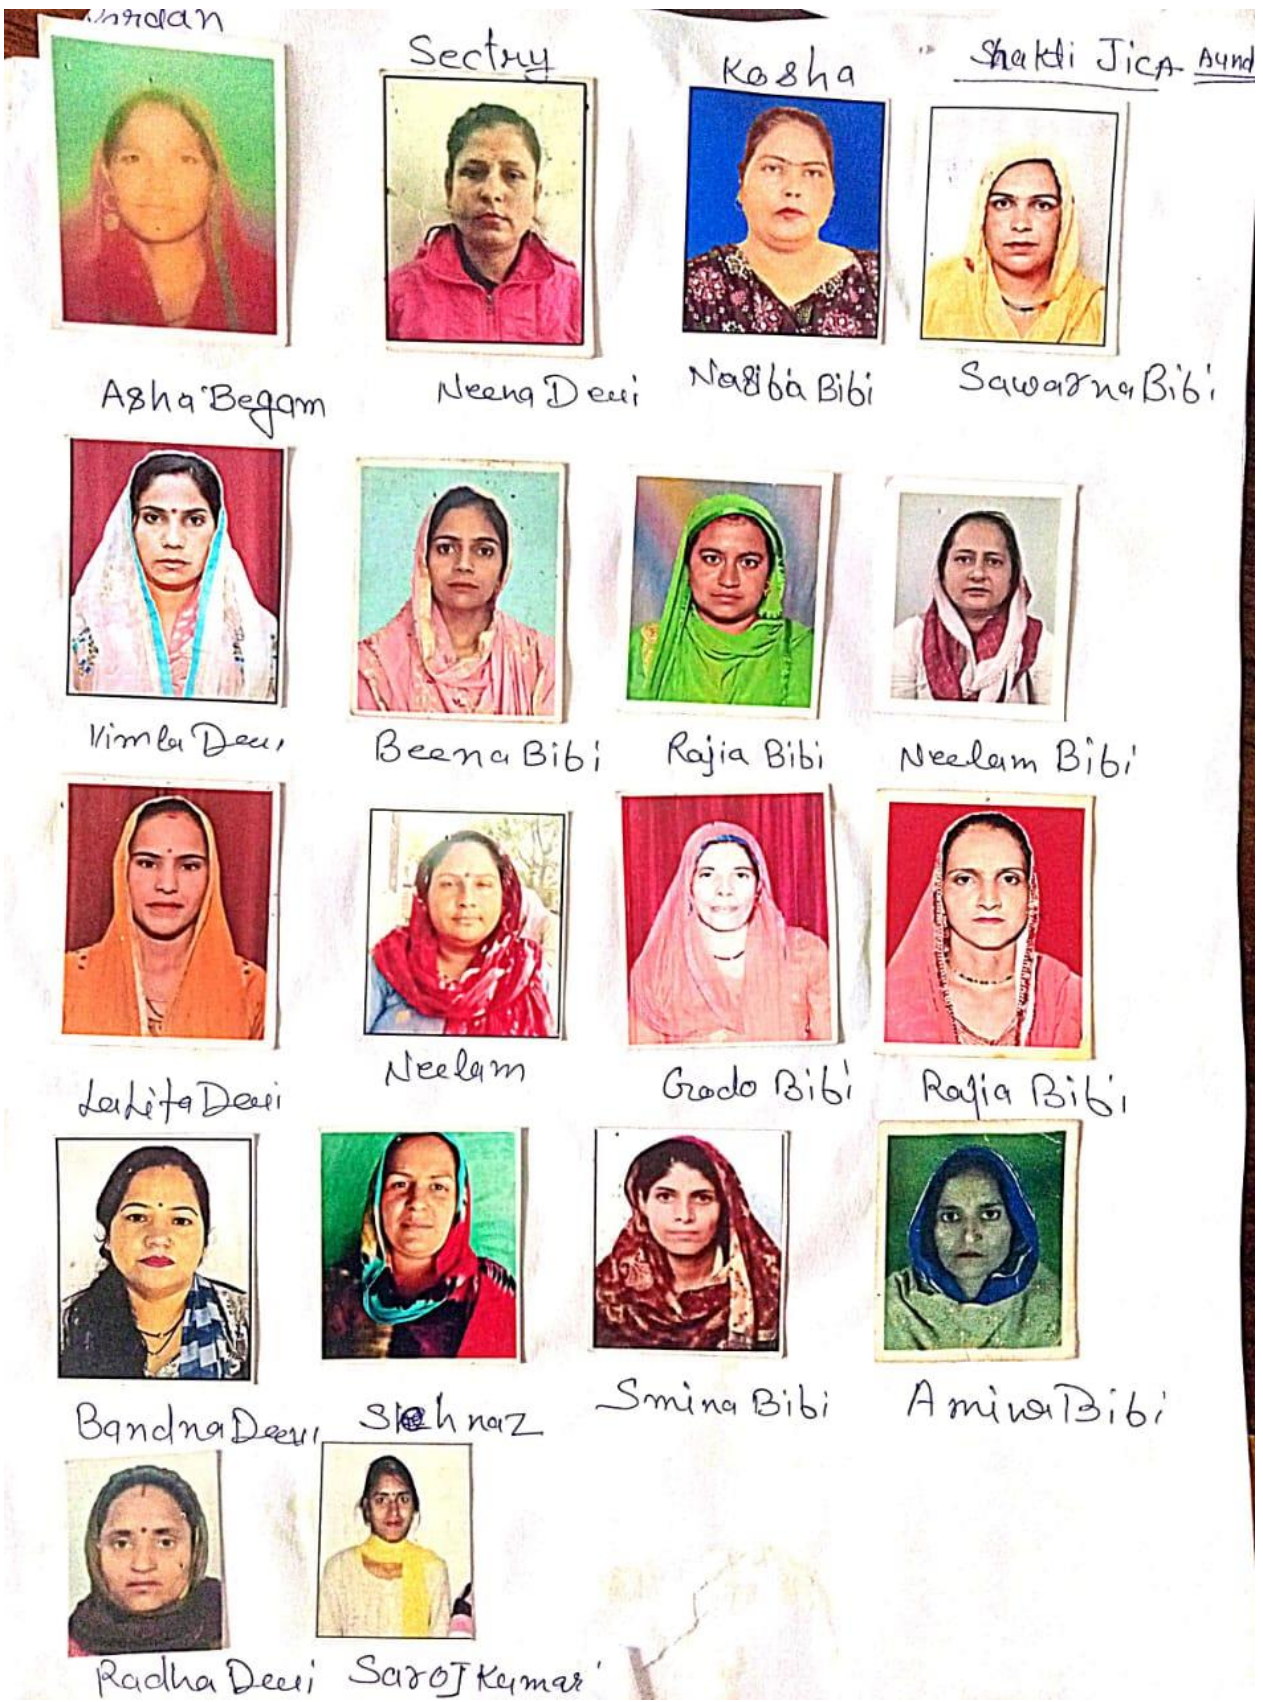 Sectry
Kosha
Shakti JICA Aund
Asha Begam
Neena Devi
Nasiba Bibi
Sawarna Bibi
Vimla Devi
Beena Bibi
Rajia Bibi
Neelam Bibi
LaLita Devi
Neelam
Grado Bibi
Rajia Bibi
Bandna Devi
Shehnaz
Smina Bibi
Amina Bibi
Radha Devi
Saroj Kumari